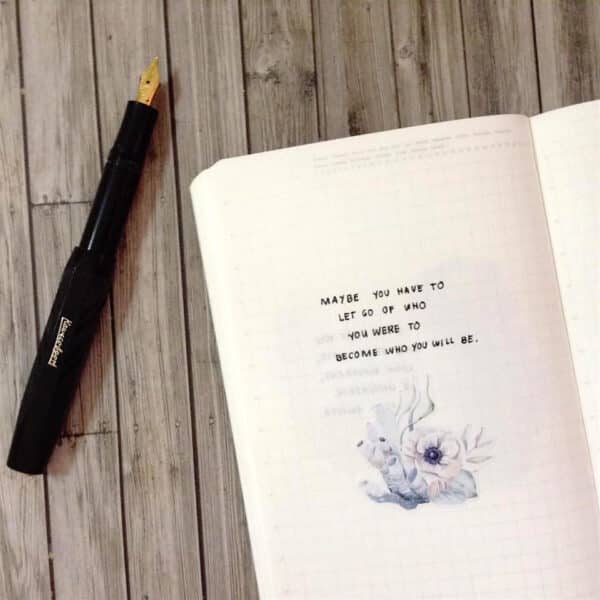 Kaweco
MAYBE YOU HAVE TO
LET GO OF WHO
YOU WERE TO
BECOME WHO YOU WILL BE.